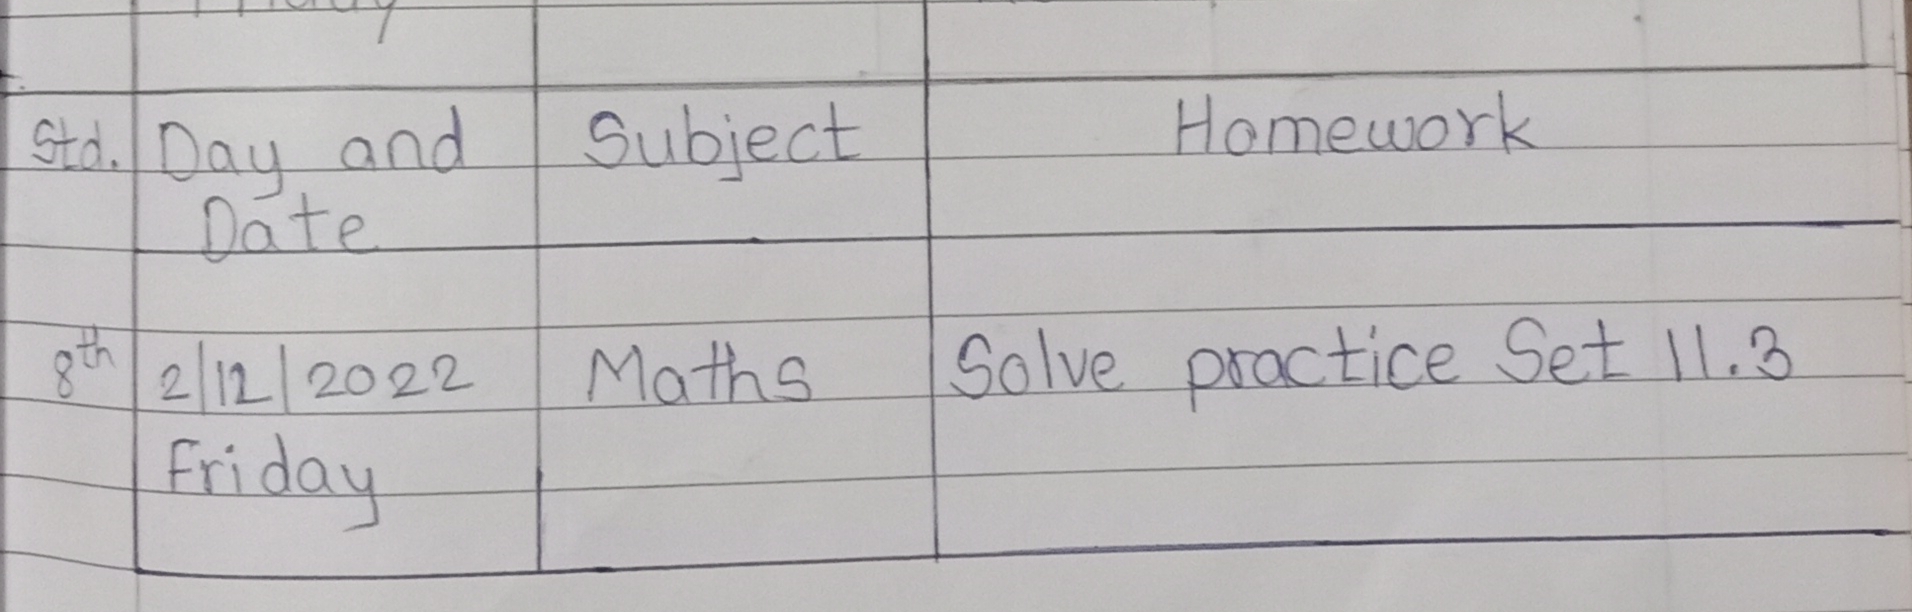 Std. Day and Date Subject Homework
8th 2/12/2022 Friday Maths Solve practice Set 11.3